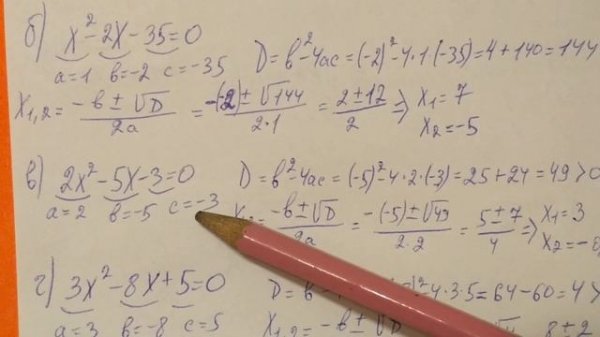 б) x² - 2x - 35 = 0
a = 1 b = -2 c = -35 D = b² - 4ac = (-2)² - 4·1·(-35) = 4 + 140 = 144
x₁,₂ = (-b ± √D)/(2a) = (-(-2) ± √144)/(2·1) = (2 ± 12)/2 => x₁ = 7
x₂ = -5
в) 2x² - 5x - 3 = 0 D = b² - 4ac = (-5)² - 4·2·(-3) = 25 + 24 = 49 > 0
a = 2 b = -5 c = -3
= (-b ± √D)/(2a) = (-(-5) ± √49)/(2·2) = (5 ± 7)/4 => x₁ = 3
x₂ = -0
г) 3x² - 8x + 5 = 0 D = b² - 4·3·5 = 64 - 60 = 4 >
a = 3 b = -8 c = 5
x₁,₂ = -b ± √D 8 ± 2